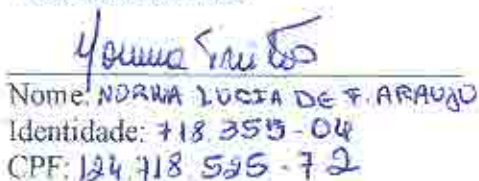 Nome: NORMA LUCIA DE F. ARAUJO
Identidade: 718 355-04
CPF: 124 718 525-72